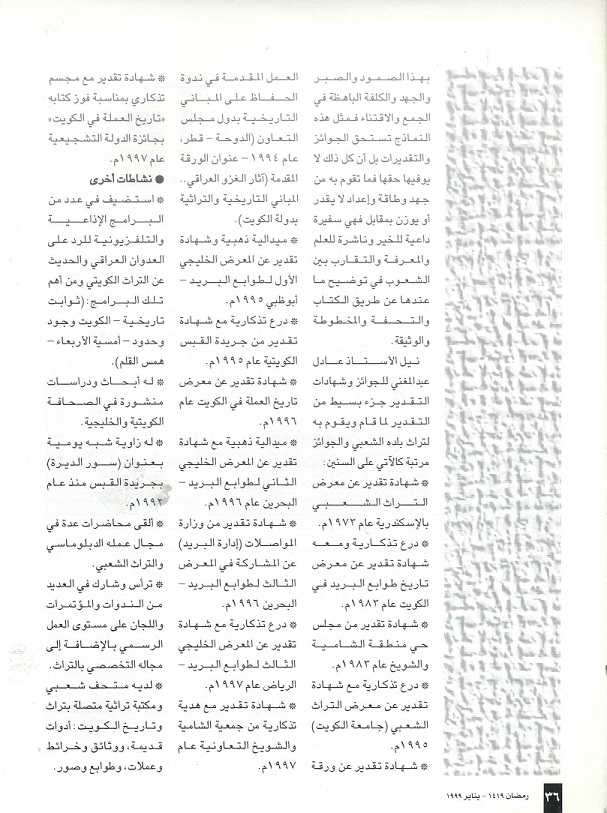 بهذا الصمود والصبر
والجهد والكلفة الباهظة في
الجمع والاقتناء فمثل هذه
النماذج تستحق الجوائز
والتقديرات بل أن كل ذلك لا
يوفيها حقها فما تقوم به من
جهد وطاقة وإعداد لا يقدر
أو يوزن بمقابل فهي سفيرة
داعية للخير وناشرة للعلم
والمعرفة والتقارب بين
الشعوب في توضيح ما
عندها عن طريق الكتاب
والتحفة والمخطوطة
والوثيقة.
نيل الأستاذ عادل
عبدالمغني للجوائز وشهادات
التقدير جزء بسيط من
التقدير لما قام ويقوم به
لتراث بلده الشعبي والجوائز
مرتبة كالآتي على السنين:
* شهادة تقدير عن معرض
التراث الشعبي
بالإسكندرية عام ١٩٧٣م.
* درع تذكارية ومعه
شهادة تقدير عن معرض
تاريخ طوابع البريد في
الكويت عام ١٩٨٣م.
* شهادة تقدير من مجلس
حي منطقة الشامية
والشويخ عام ١٩٨٣م.
* درع تذكارية مع شهادة
تقدير عن معرض التراث
الشعبي (جامعة الكويت)
١٩٩٥م.
* شهادة تقدير عن ورقة
العمل المقدمة في ندوة
الحفاظ على المباني
التاريخية بدول مجلس
التعاون (الدوحة - قطر،
عام ١٩٩٤ - عنوان الورقة
المقدمة (آثار الغزو العراقي..
المباني التاريخية والتراثية
بدولة الكويت).
* ميدالية ذهبية وشهادة
تقدير عن المعرض الخليجي
الأول لطوابع البريد -
أبوظبي ١٩٩٥م.
* درع تذكارية مع شهادة
تقدير من جريدة القبس
الكويتية عام ١٩٩٥م.
* شهادة تقدير عن معرض
تاريخ العملة في الكويت عام
١٩٩٦م.
* ميدالية ذهبية مع شهادة
تقدير عن المعرض الخليجي
الثاني لطوابع البريد -
البحرين عام ١٩٩٦م.
* شهادة تقدير من وزارة
المواصلات (إدارة البريد)
عن المشاركة في المعرض
الثالث لطوابع البريد -
البحرين ١٩٩٦م.
* درع تذكارية مع شهادة
تقدير عن المعرض الخليجي
الثالث لطوابع البريد -
الرياض عام ١٩٩٧م.
* شهادة تقدير مع هدية
تذكارية من جمعية الشامية
والشويخ التعاونية عام
١٩٩٧م.
* شهادة تقدير مع مجسم
تذكاري بمناسبة فوز كتابه
«تاريخ العملة في الكويت»
بجائزة الدولة التشجيعية
عام ١٩٩٧م.
● نشاطات أخرى
* استضيف في عدد من
البرامج الإذاعية
والتلفزيونية للرد على
العدوان العراقي والحديث
عن التراث الكويتي ومن أهم
تلك البرامج: (ثوابت
تاريخية - الكويت وجود
وحدود - أمسية الأربعاء -
همس القلم).
* له أبحاث ودراسات
منشورة في الصحافة
الكويتية والخليجية.
* له زاوية شبه يومية
بعنوان (سور الديرة)
بجريدة القبس منذ عام
١٩٩٣م.
* ألقى محاضرات عدة في
مجال عمله الدبلوماسي
والتراث الشعبي.
* ترأس وشارك في العديد
من الندوات والمؤتمرات
واللجان على مستوى العمل
الرسمي بالإضافة إلى
مجاله التخصصي بالتراث.
* لديه متحف شعبي
ومكتبة تراثية متصلة بتراث
وتاريخ الكويت: أدوات
قديمة، ووثائق وخرائط
وعملات، وطوابع وصور.
٣٦ رمضان ١٤١٩ - يناير ١٩٩٩